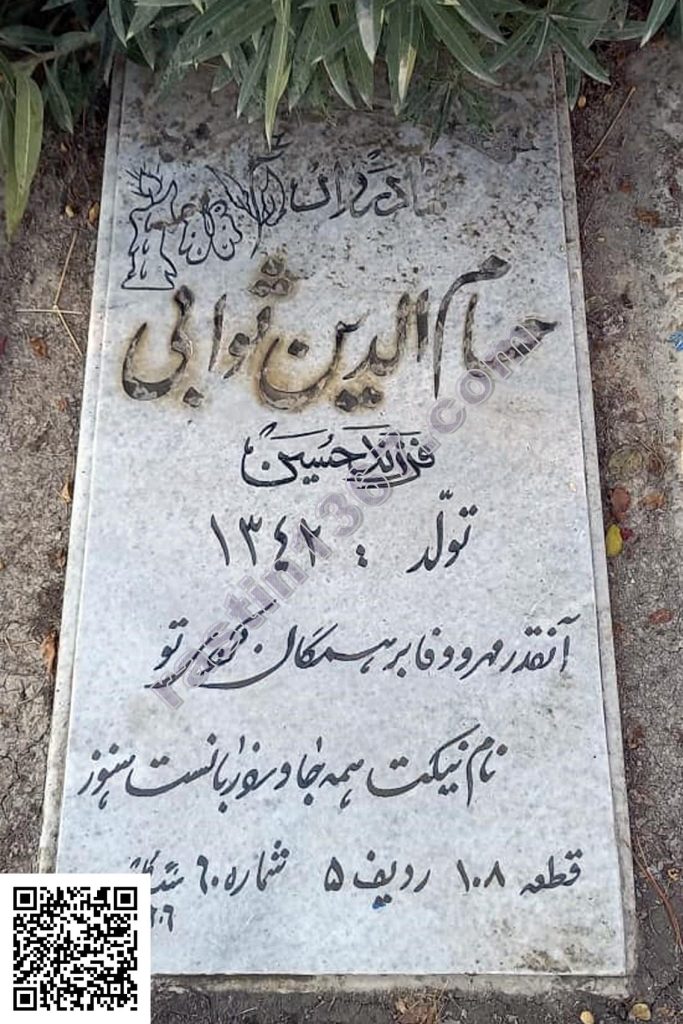 حسام الدین ثوابی
فرزند حسین
تولّد : ۱۳۴۲
آنقدر مهر و وفا بر همگان کردی تو
نام نیکت همه جا ورد زبانست هنوز
قطعه ۱۰۸ ردیف ۵ شماره ۶۰
rastin1361.com